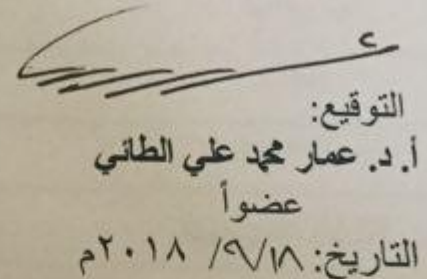 التوقيع:
أ. د. عمار محمد علي الطائي
عضواً
التاريخ: ١٨/٩/ ٢٠١٨م